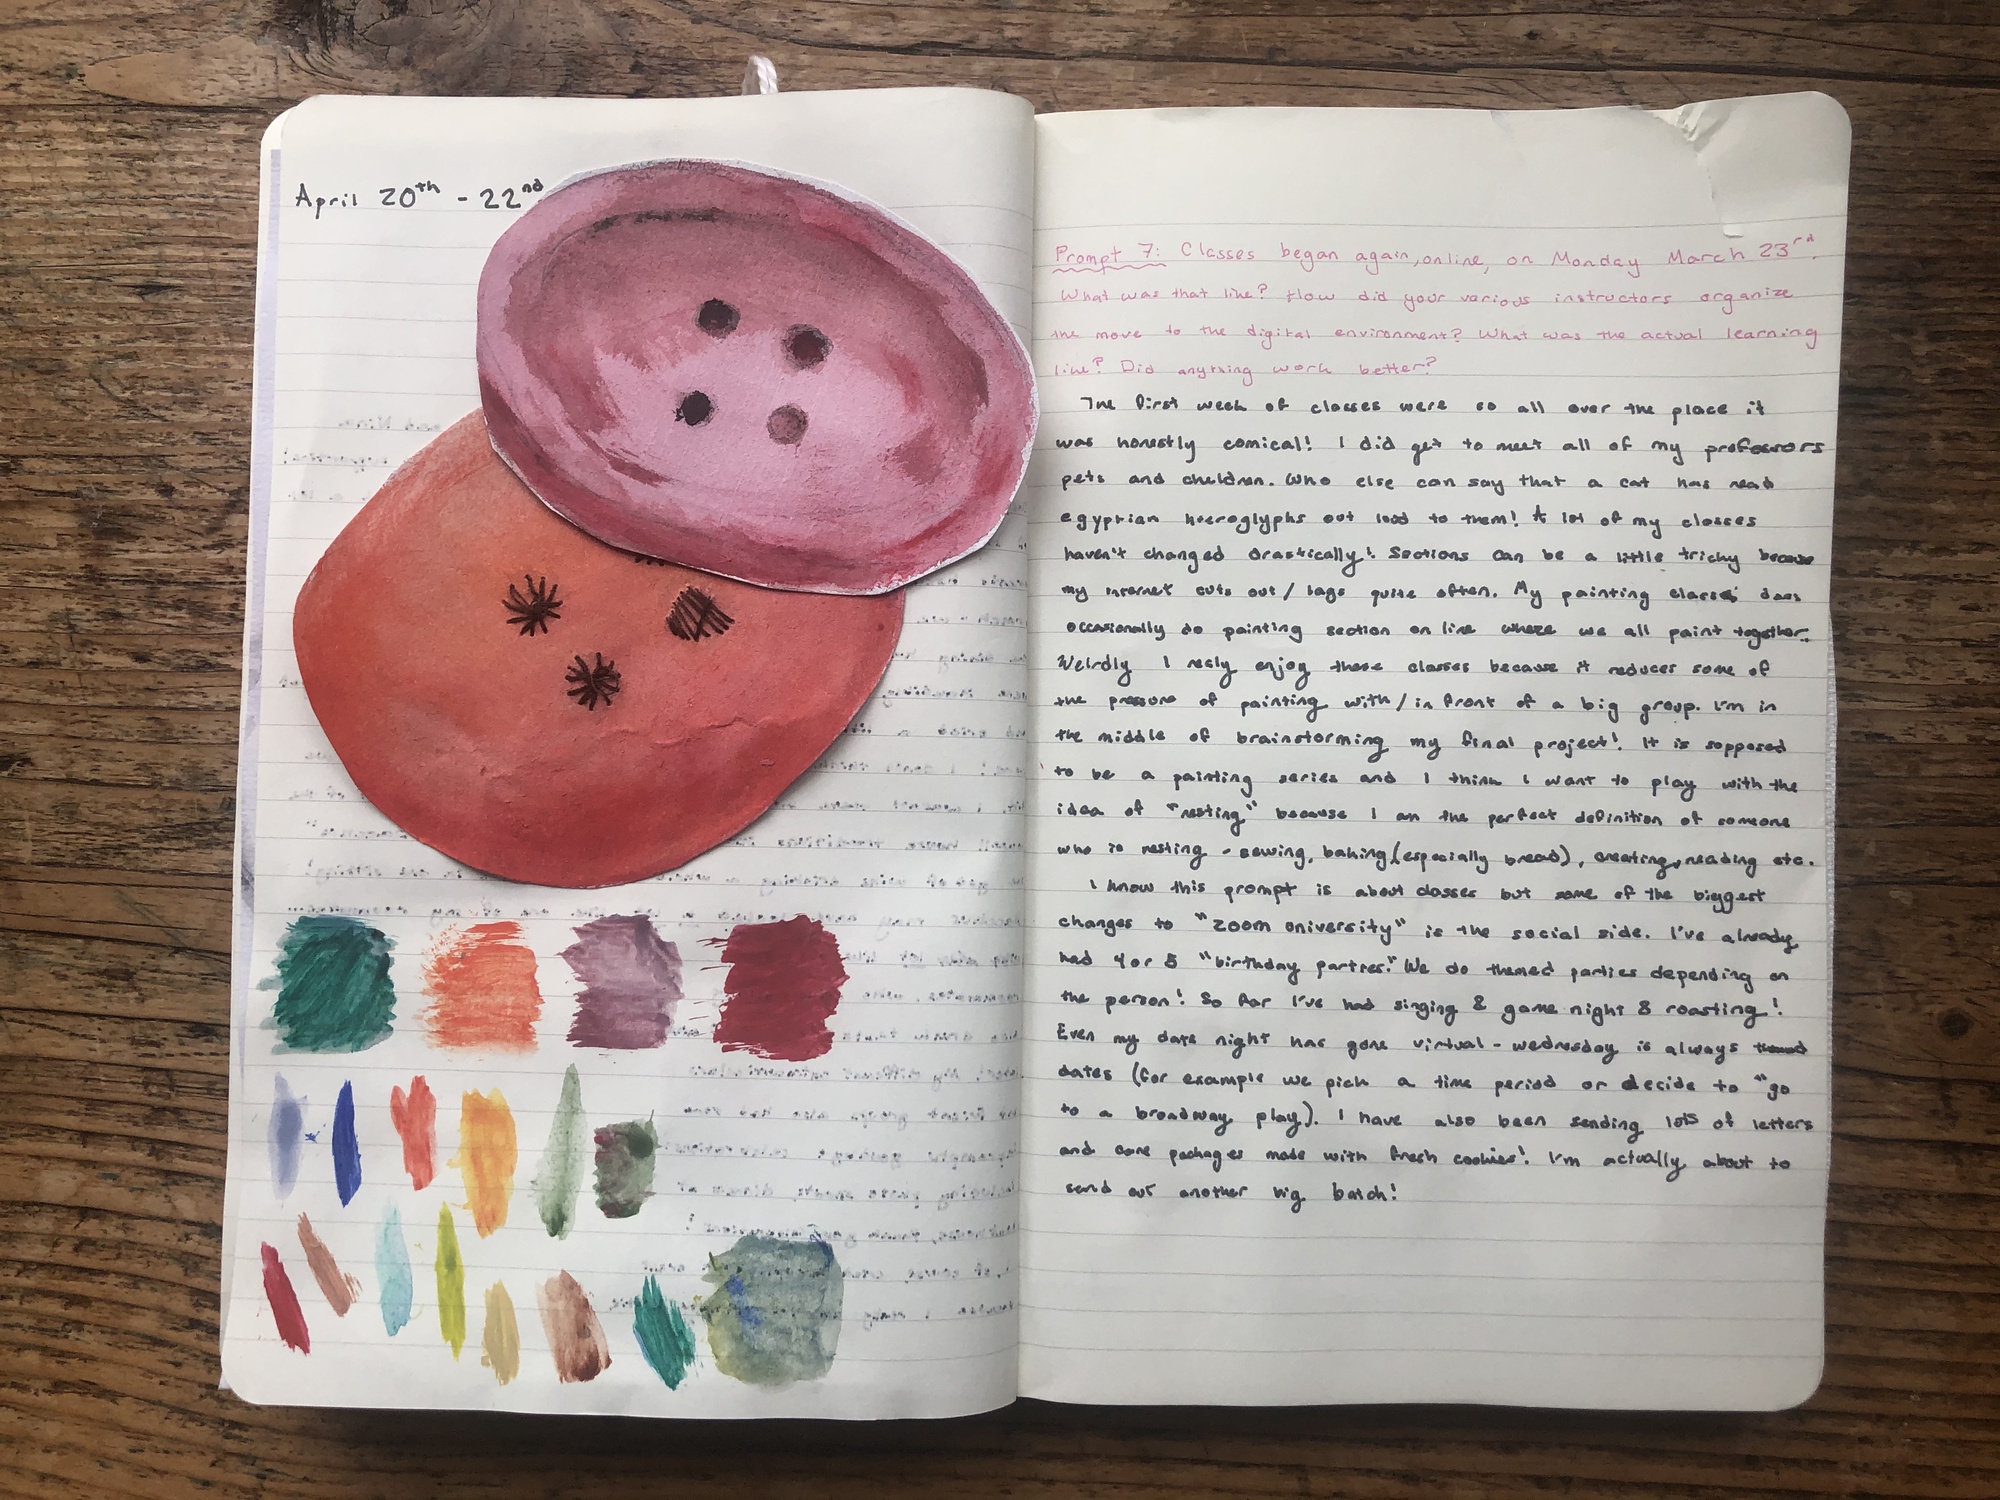 April 20th - 22nd
Prompt 7: Classes began again, online, on Monday March 23rd.
What was that like? How did your various instructors organize
the move to the digital environment? What was the actual learning
like? Did anything work better?
The first week of classes were so all over the place it
was honestly comical! I did get to meet all of my professors
pets and children. Who else can say that a cat has read
egyptian hieroglyphs out loud to them! A lot of my classes
haven't changed drastically! Sections can be a little tricky because
my internet cuts out / lags quite often. My painting classes does
occasionally do painting section online where we all paint together.
Weirdly I realy enjoy these classes because it reduces some of
the pressure of painting with / in front of a big group. I'm in
the middle of brainstorming my final project! It is supposed
to be a painting series and I think I want to play with the
idea of "nesting" because I am the perfect definition of someone
who is nesting - sewing, baking (especially bread), creating, reading etc.
I know this prompt is about classes but some of the biggest
changes to "zoom university" is the social side. I've already
had 4 or 5 "birthday parties." We do themed parties depending on
the person! So far I've had singing & game night & roasting!
Even my date night has gone virtual - wednesday is always themed
dates (for example we pick a time period or decide to "go
to a broadway play). I have also been sending lots of letters
and care packages made with fresh cookies! I'm actually about to
send out another big batch!